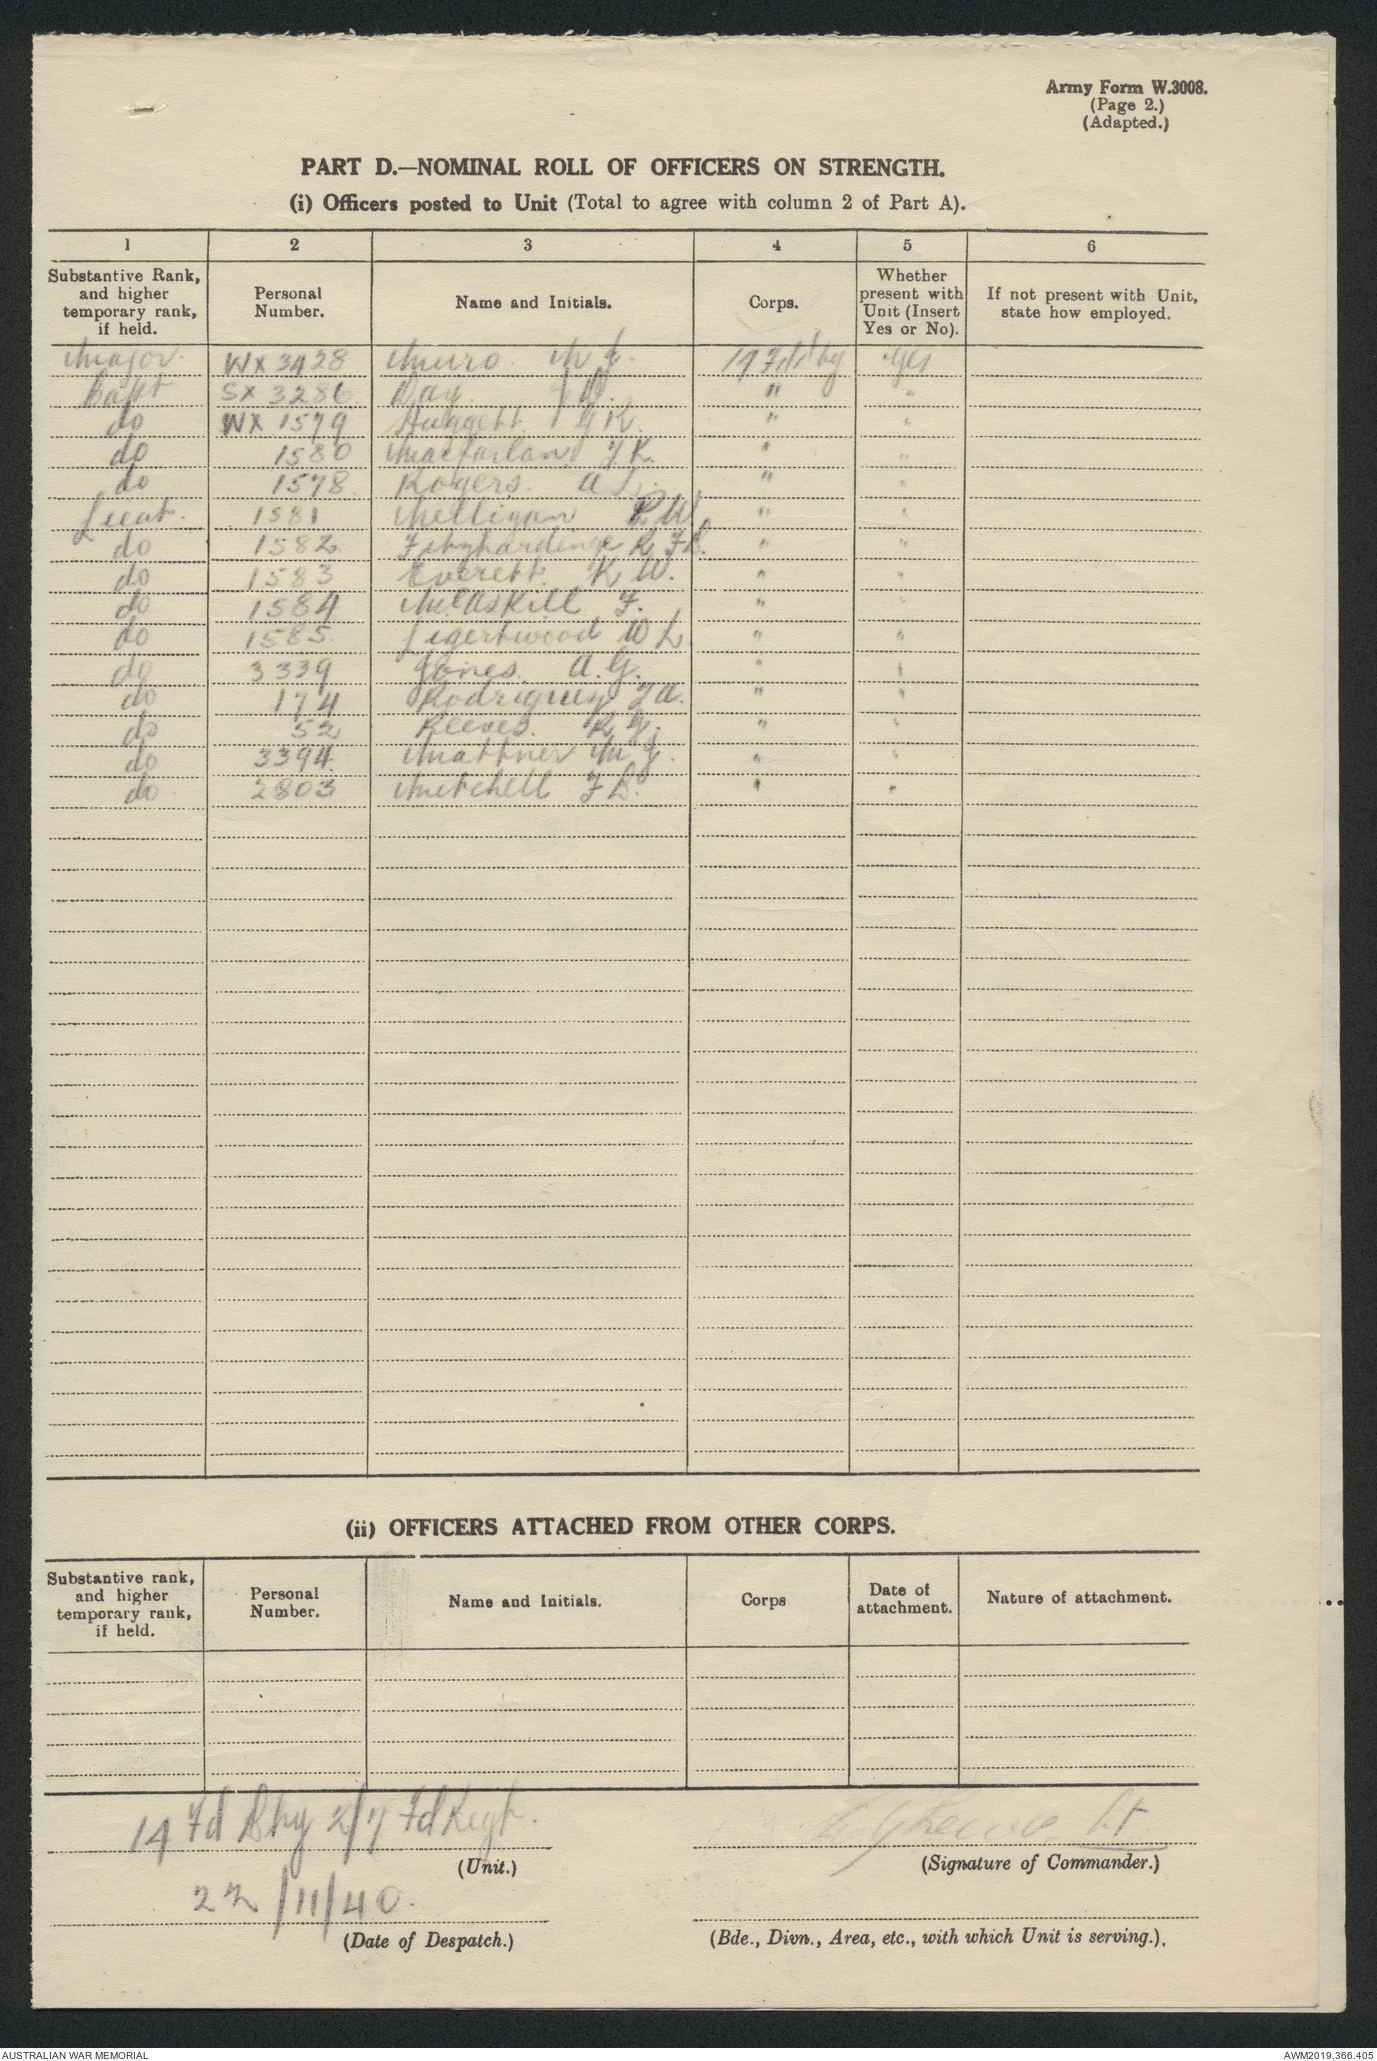 Army Form W.3008.
(Page 2.)
(Adapted.)
PART D.—NOMINAL ROLL OF OFFICERS ON STRENGTH.
(i) Officers posted to Unit (Total to agree with column 2 of Part A).
1 2 3 4 5 6
Substantive Rank, and higher temporary rank, if held. Personal Number. Name and Initials. Corps. Whether present with Unit (Insert Yes or No). If not present with Unit, state how employed.
Major. WX 3428 Munro yes
Capt SX 3286 Day. D. " "
do WX 1579 Huggett G K. " "
do 1580 Macfarlan J K. " "
do 1578 Rogers. A L. " "
Lieut. 1581 Melligan R W " "
do 1582 Fitzhardinge " "
do 1583 Everett K W. " "
do 1584 McAskill F. " "
do 1585 Ligertwood W L " "
do 3339 Jones. A. G. " "
do 174 Rodriguez J A. " "
do 52 Reeves. R G. " "
do 3394 Mattner M G. " "
do 2803 Mitchell " "
(ii) OFFICERS ATTACHED FROM OTHER CORPS.
Substantive rank, and higher temporary rank, if held. Personal Number. Name and Initials. Corps Date of attachment. Nature of attachment.
14 Fd Bty 2/7 Fd Regt. Lt
(Unit.) (Signature of Commander.)
22/11/40.
(Date of Despatch.) (Bde., Divn., Area, etc., with which Unit is serving.).
AUSTRALIAN WAR MEMORIAL AWM2019.366.405